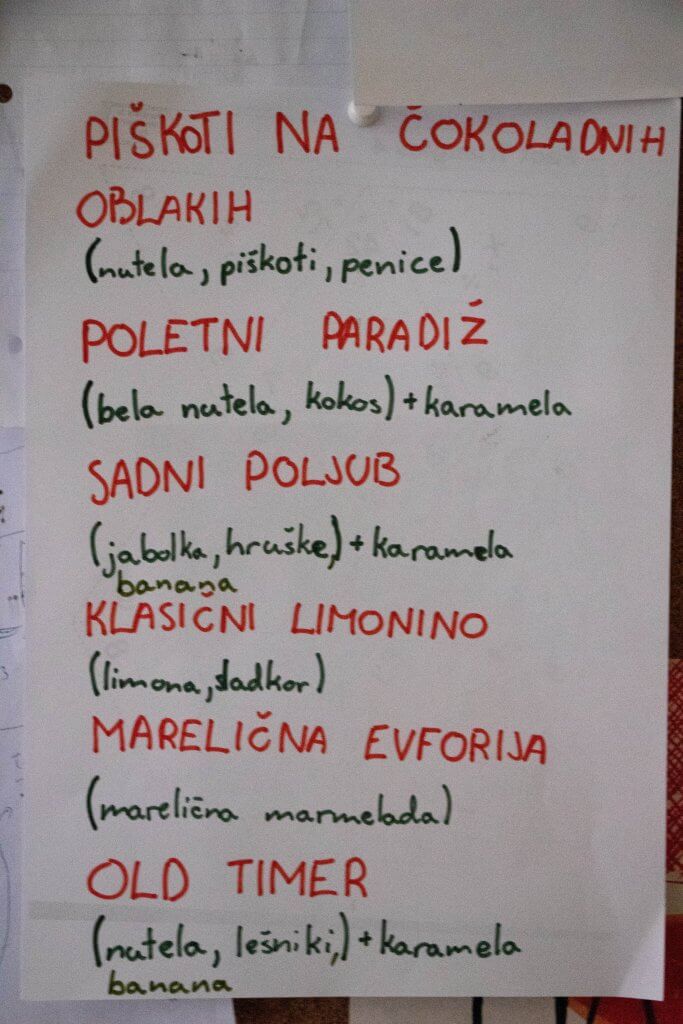 PIŠKOTI NA ČOKOLADNIH
OBLAKIH
(nutela, piškoti, penice)
POLETNI PARADIŽ
(bela nutela, kokos) + karamela
SADNI POLJUB
(jabolka, hruške,) + karamela
banana
KLASIČNI LIMONINO
(limona, sladkor)
MARELIČNA EVFORIJA
(marelična marmelada)
OLD TIMER
(nutela, lešniki,) + karamela
banana